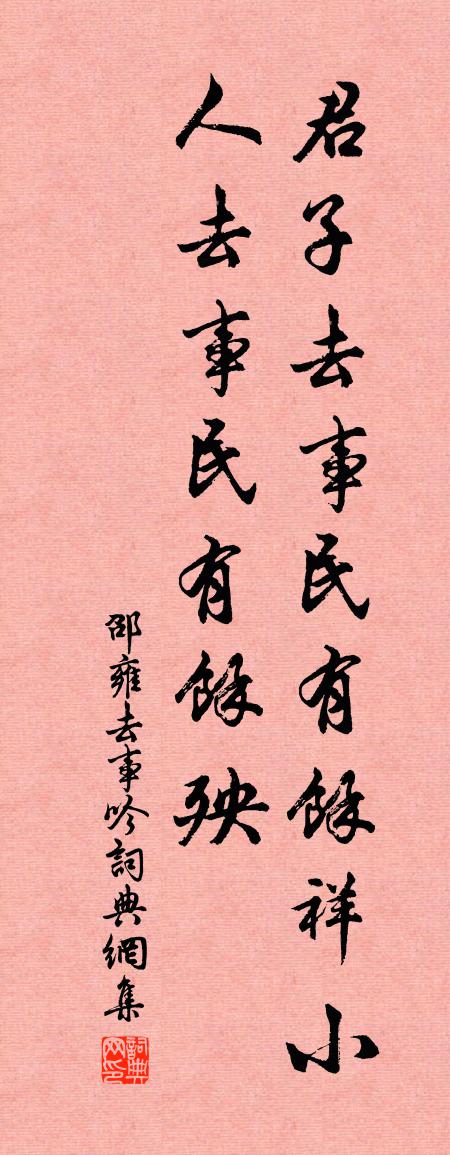 君子去事民有餘祥小
人去事民有餘殃
邵雍去事吟詞典網集
詞典
网印